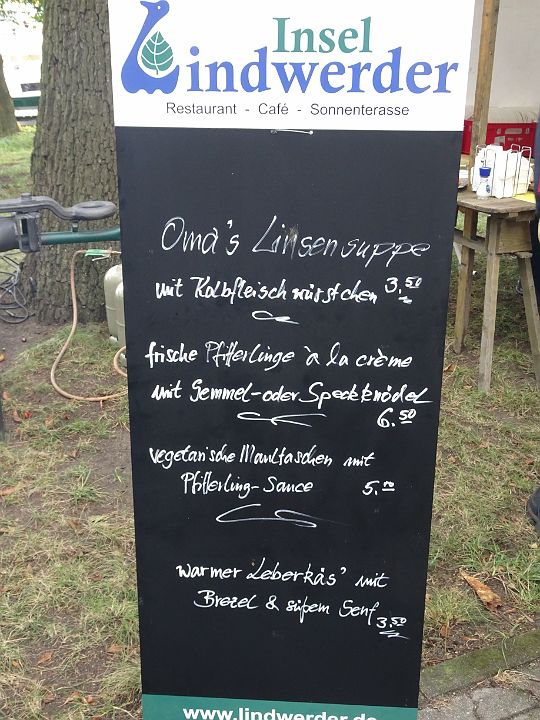 Insel
Lindwerder
Restaurant - Café - Sonnenterasse
Oma's Linsensuppe
mit Kalbfleischwürstchen 3,50
frische Pfifferlinge à la crème
mit Semmel- oder Speckknödel
6,50
vegetarische Maultaschen mit
Pfifferling-Sauce 5,-
warmer Leberkäs' mit
Brezel & süßem Senf
3,50
www.lindwerder.de